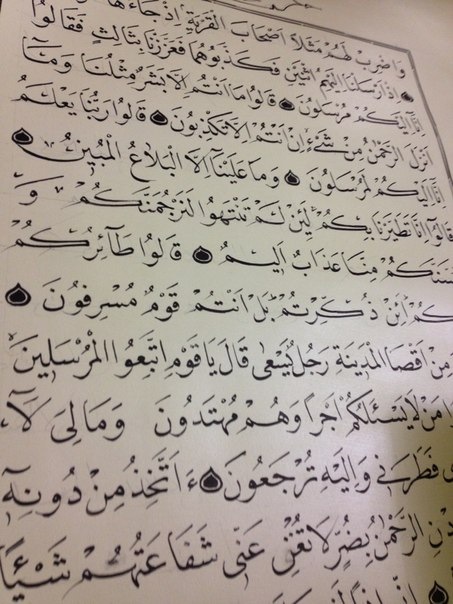 وَاضْرِبْ لَهُمْ مَثَلًا اَصْحَابَ الْقَرْيَةِ اِذْ جَاءَهَا
اِذْ اَرْسَلْنَا اِلَيْهِمُ اثْنَيْنِ فَكَذَّبُوهُمَا فَعَزَّزْنَا بِثَالِثٍ فَقَالُوا
اِنَّا اِلَيْكُمْ مُرْسَلُونَ قَالُوا مَا اَنْتُمْ اِلَّا بَشَرٌ مِثْلُنَا وَمَا
اَنْزَلَ الرَّحْمٰنُ مِنْ شَيْءٍ اِنْ اَنْتُمْ اِلَّا تَكْذِبُونَ قَالُوا رَبُّنَا يَعْلَمُ
اِنَّا اِلَيْكُمْ لَمُرْسَلُونَ وَمَا عَلَيْنَا اِلَّا الْبَلَاغُ الْمُبِينُ
قَالُوا اِنَّا تَطَيَّرْنَا بِكُمْ لَئِنْ لَمْ تَنْتَهُوا لَنَرْجُمَنَّكُمْ وَ
سَّنَّكُمْ مِنَّا عَذَابٌ اَلِيمٌ قَالُوا طَآئِرُكُمْ
كُمْ اَئِنْ ذُكِّرْتُمْ بَلْ اَنْتُمْ قَوْمٌ مُسْرِفُونَ
مِنْ اَقْصَا الْمَدِينَةِ رَجُلٌ يَسْعٰى قَالَ يَا قَوْمِ اتَّبِعُوا الْمُرْسَلِينَ
مَنْ لَا يَسْئَلُكُمْ اَجْرًا وَهُمْ مُهْتَدُونَ وَمَا لِىَ لَآ
فَطَرَنِى وَاِلَيْهِ تُرْجَعُونَ ءَاَتَّخِذُ مِنْ دُونِهِ
دْنِ الرَّحْمٰنُ بِضُرٍّ لَا تُغْنِ عَنِّى شَفَاعَتُهُمْ شَيْئًا